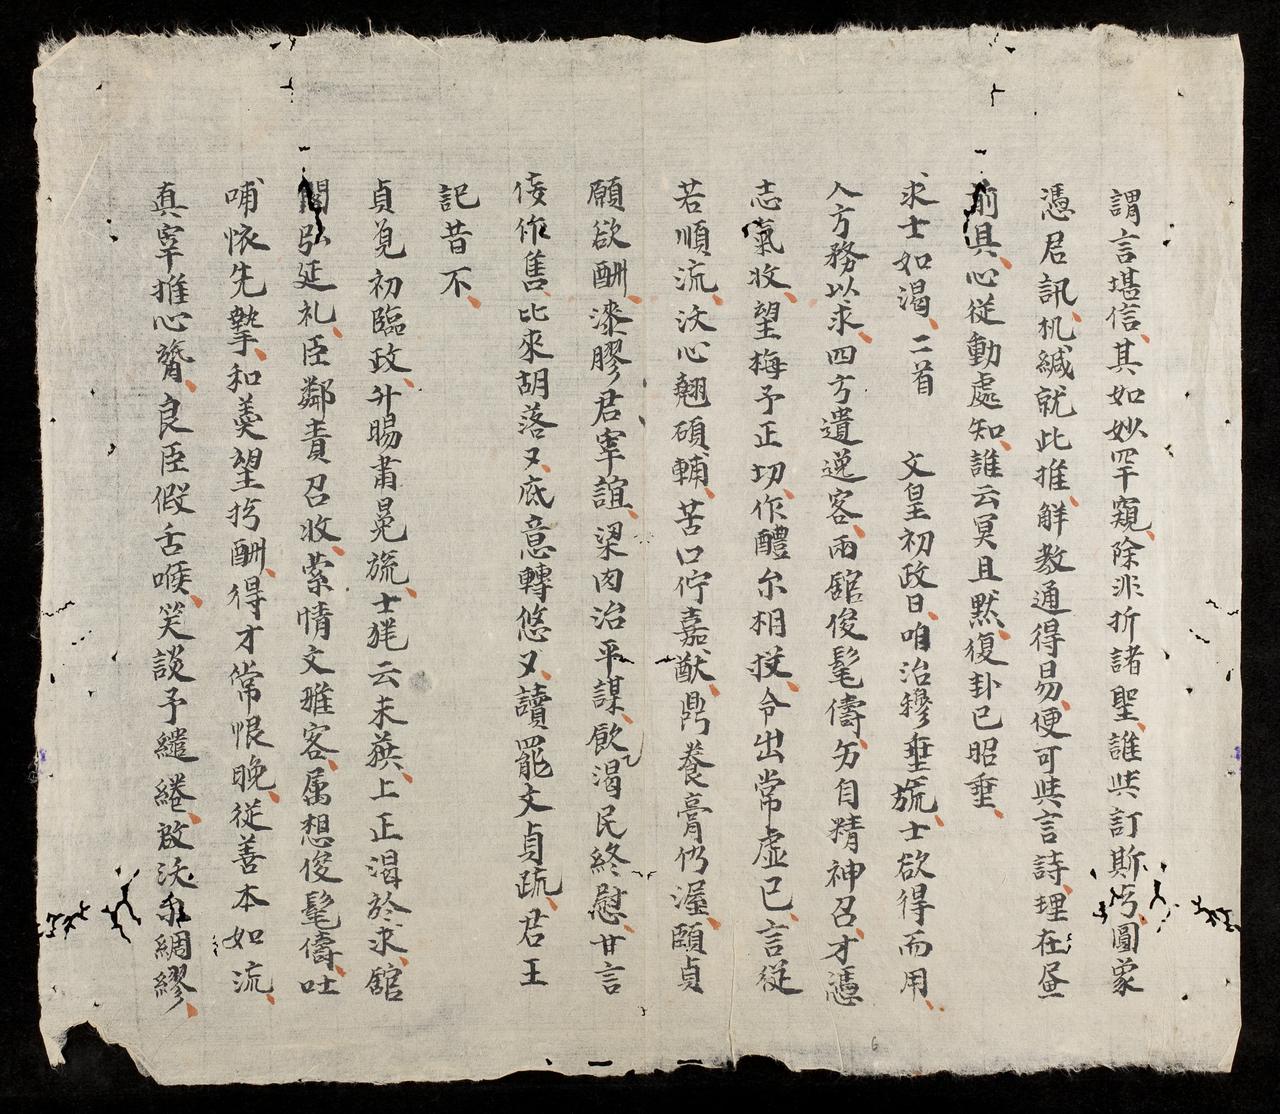 謂言堪信其如妙罕窺除非折諸聖誰与訂斯丐圓象
憑君訊机緘就此推解教通得易便可与言詩理在畫
前具心従動處知誰云冥且默復卦已昭垂
求士如渴二首 文皇初政日咱治穆垂旒士欲得而用
人方務以求四方遺逸客兩舘俊髦儔另自精神召才憑
志氣收望梅予正切作醴尔相投令出常虛已言従
若順流汝心翹碩輔苦口佇嘉猷鼎養膏仍渥頤貞
願欲酬漆膠君宰誼梁肉治平謀飲渴民終慰甘言
倿作售比來胡落又底意轉悠又讀罷文貞疏君王
記昔不
貞覓初臨政升賜肅晃旒士毪云未蒸上正渴於求舘
閣弘延礼臣鄰責召收縈情文雅客属想俊髦儔吐
哺懷先摯和羹望扵酬得才常恨晚従善本如流
真宰推心膂良臣假舌喉笑談予繾綣啟沃尔綢繆